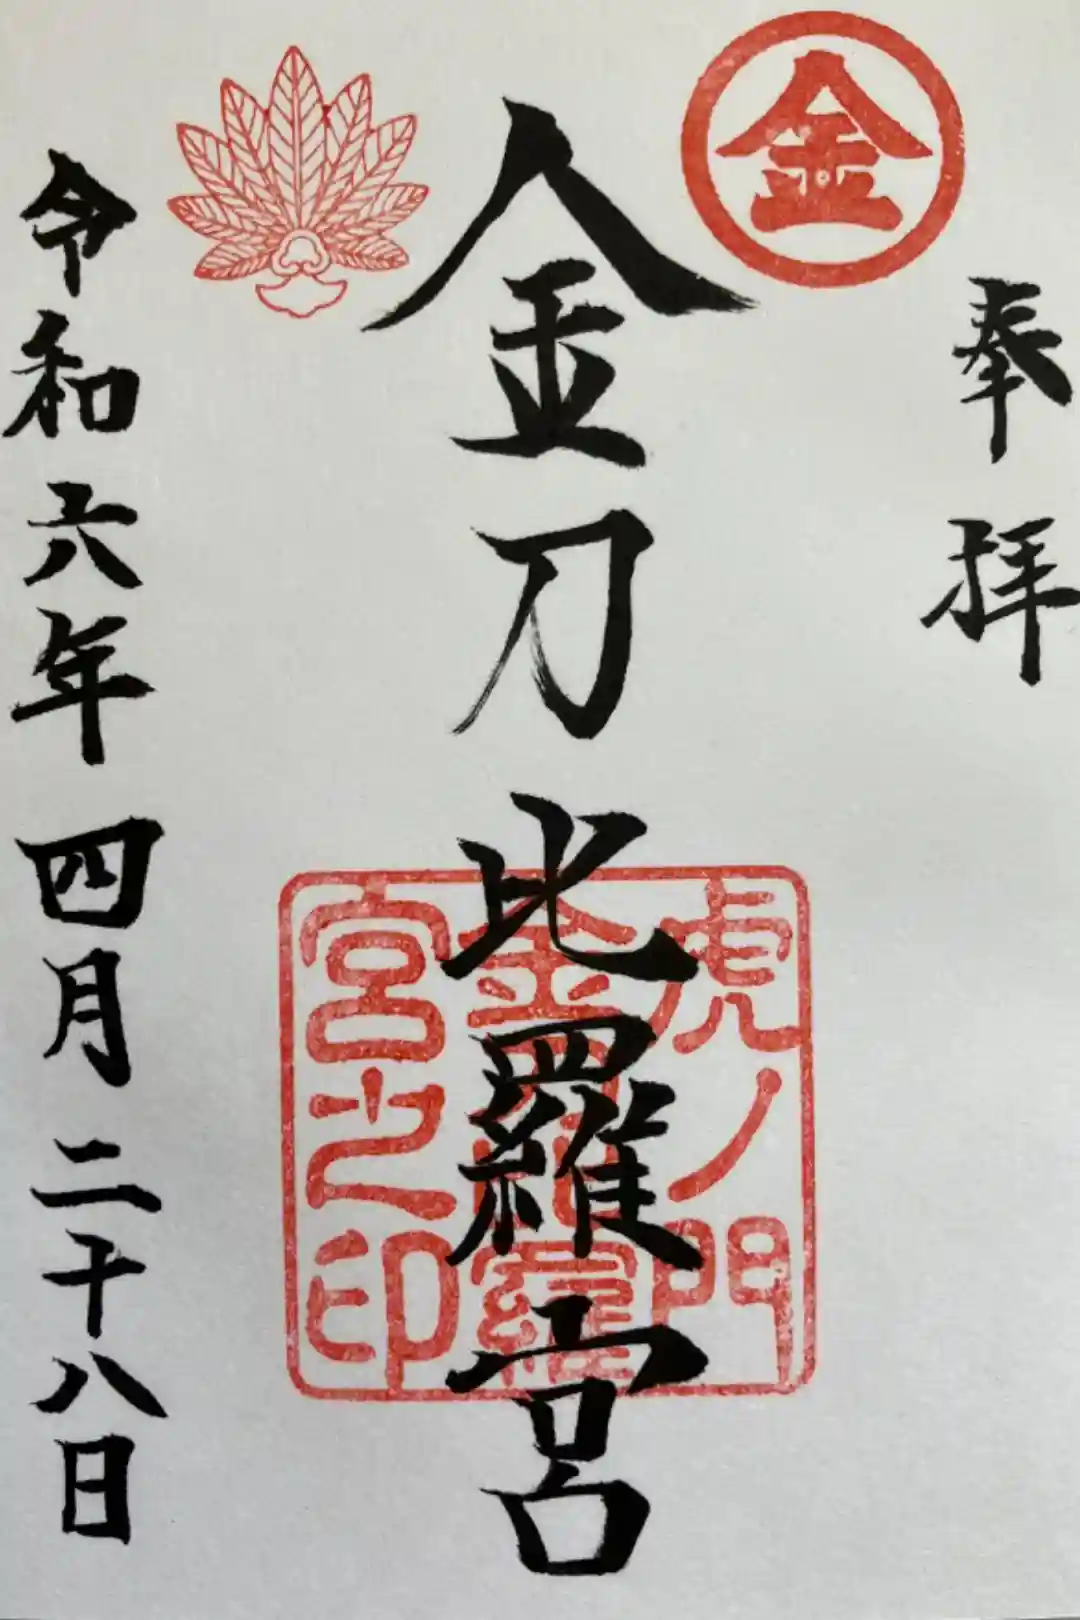 金
奉拝
金刀比羅宮
虎ノ門
金刀比羅
宮之印
令和六年四月二十八日